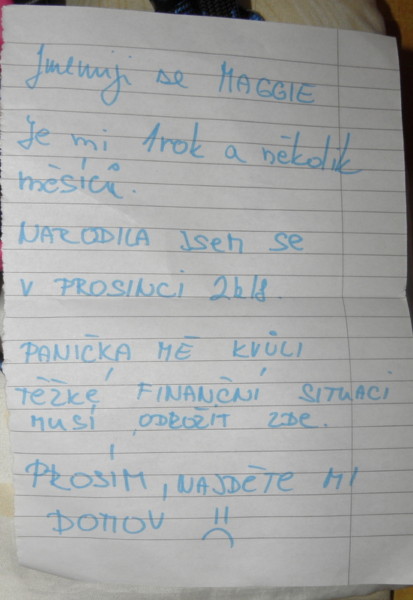 Jmenuji se MAGGIE
Je mi 1rok a několik
měsíců.
NARODILA jsem se
v PROSINCI 2018.
PANIČKA MĚ KVŮLI
TĚŽKÉ FINANČNÍ SITUACI
MUSÍ ODROŽIT ZDE.
PROSÍM, NAJDĚTE MI
DOMOV :(